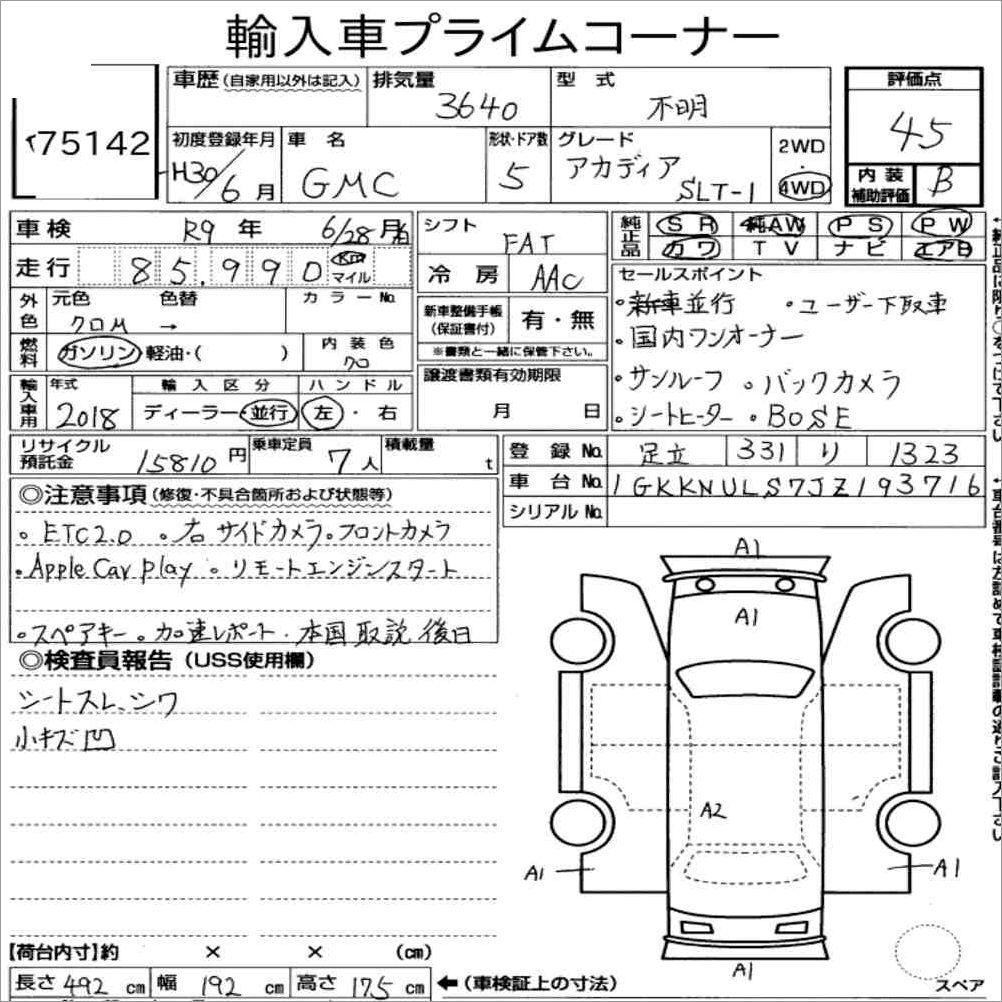 輸入車プライムコーナー
75142
車歴 (自家用以外は記入)
排気量 3640
型式 不明
評価点 45
初度登録年月 H30/6月
車名 GMC
形状・ドア数 5
グレード アカディア SLT-1
2WD ・ 4WD
内装補助評価 B
車検 R9年 6/28月
シフト FAT
純正品 SR 純AW PS PW
カワ TV ナビ エアB
走行 85,990 Km マイル
冷房 AAC
セールスポイント
・新車並行 ・ユーザー下取車
・国内ワンオーナー
・サンルーフ ・バックカメラ
・シートヒーター ・BOSE
外色 元色 クロM 色替 → カラーNo.
新車整備手帳(保証書付) 有・無
※書類と一緒に保管下さい。
燃料 ガソリン 軽油・( )
内装色 クロ
譲渡書類有効期限
月 日
輸入車用 年式 2018
輸入区分 ディーラー・並行
ハンドル 左・右
リサイクル預託金 15810円
乗車定員 7人
積載量 t
登録No. 足立 331 り 1323
車台No. 1GKKNULS7JZ193716
シリアルNo.
◎注意事項 (修復・不具合箇所および状態等)
・ETC2.0 ・右サイドカメラ・フロントカメラ
・Apple Car play ・リモートエンジンスタート
・スペアキー ・加速レポート・本国取説後日
◎検査員報告 (USS使用欄)
シートスレ、シワ
小キズ凹
A1
A1
A2
A1
A1
A1
【荷台内寸】約 × × (cm)
長さ 492 cm 幅 192 cm 高さ 175 cm ←(車検証上の寸法)
スペア